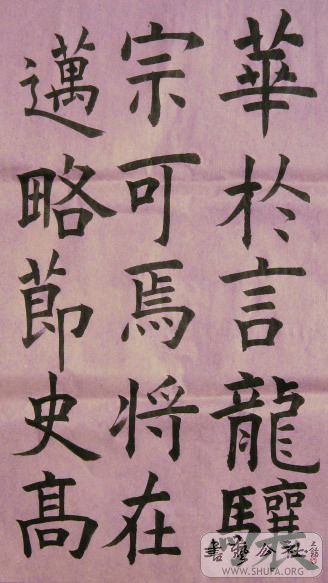 華於言龍驤
宗可焉将在
邁略莭史髙
書藝公社
WWW.SHUFA.ORG